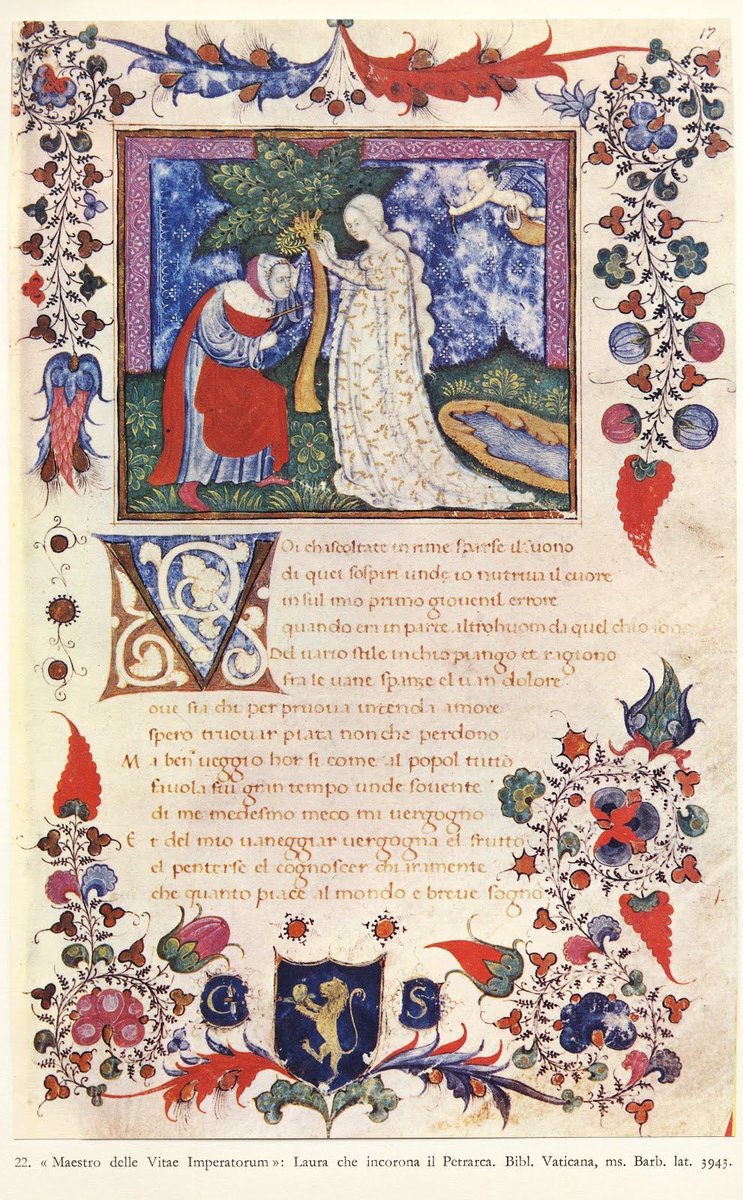 17
VOi chascoltate in rime sparse il suono
di quei sospiri unde io nutriua il cuore
in sul mio primo giouenil errore
quando era in parte altro huom da quel chio sono
Del uario stile in chio piango et ragiono
fra le uane sperançe el uan dolore
oue sia chi per pruoua intenda amore
spero truouar piata non che perdono
Ma ben ueggio hor si come al popol tutto
fauola fui gran tempo unde souente
di me medesmo meco mi uergogno
Et del mio uaneggiar uergogna el frutto
el penterse el cognoscer chiaramente
che quanto piace al mondo e breue sogno
G S
22. « Maestro delle Vitae Imperatorum »: Laura che incorona il Petrarca. Bibl. Vaticana, ms. Barb. lat. 3943.